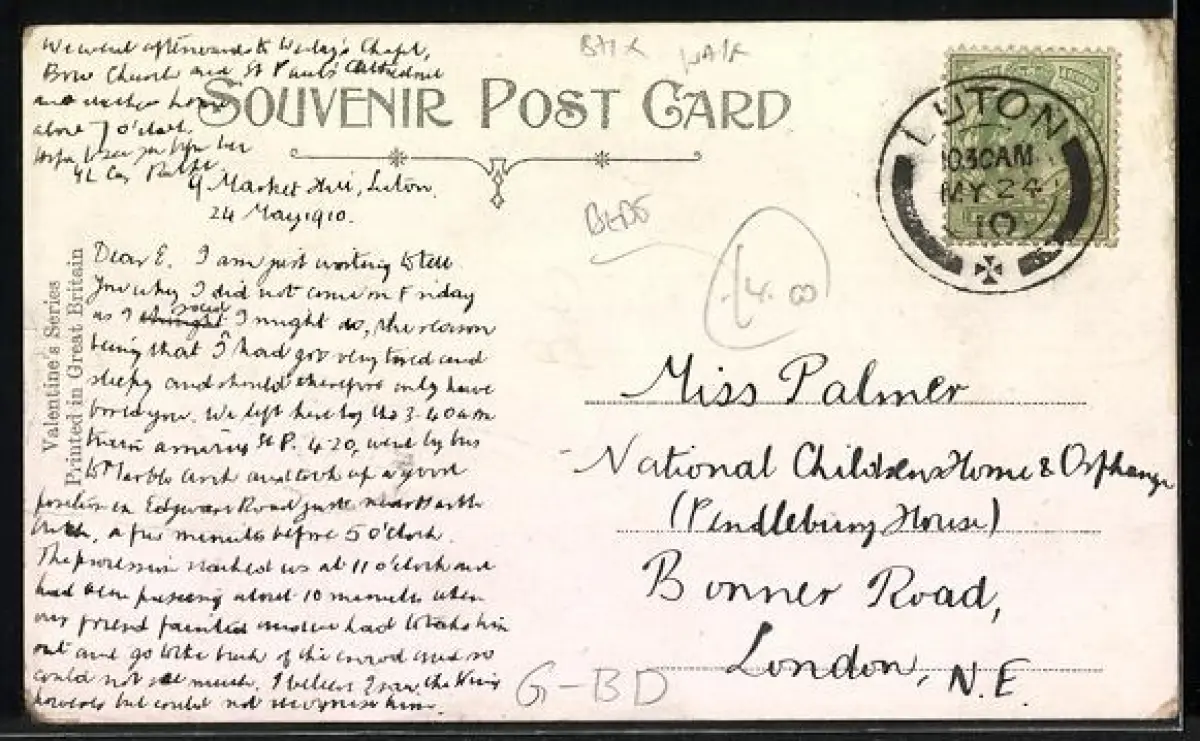 We went afterwards to Wesley's Chapel,
Bow Church and St Paul's Cathedral
and reached home
about 7 o'clock.
Hope to see you
Yr Ralph
SOUVENIR POST CARD
9 Market Hill, Luton.
24 May 1910.
Dear E. I am just writing to tell
you why I did not come on Friday
as I thought said I might do, the reason
being that I had got very tired and
sleepy and should therefore only have
bored you. We left here by the 3-40 am
train arriving St P. 4-20, went by bus
to Marble Arch and took up a good
position in Edgware Road just near Marble
Arch, a few minutes before 5 o'clock.
The procession reached us at 11 o'clock and
had been passing about 10 minutes when
our friend fainted and we had to take him
out and go to the back of the crowd and so
could not see much. I believe I saw the King
however but could not recognise him.
Valentine's Series
Printed in Great Britain
LUTON
1030AM
MY 24
10
BEDS
14.00
Miss Palmer
National Childrens Home & Orphanage
(Pendlebury House)
Bonner Road,
London, N.E.
G-BD